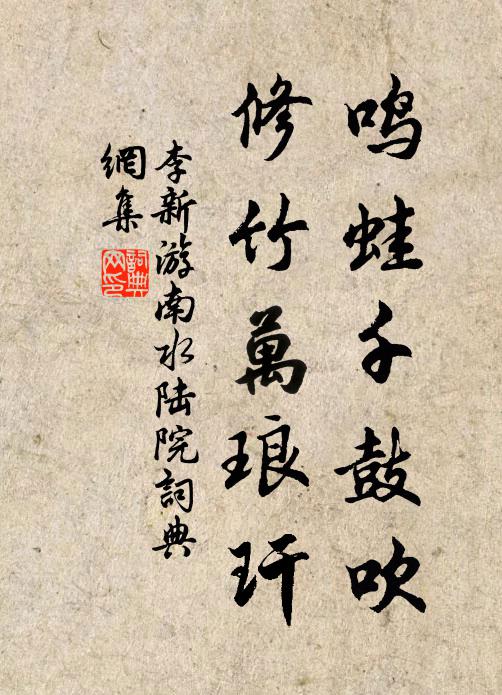 鸣蛙千鼓吹
修竹萬琅玕
李新游南水陆院詞典
網集
詞典网印